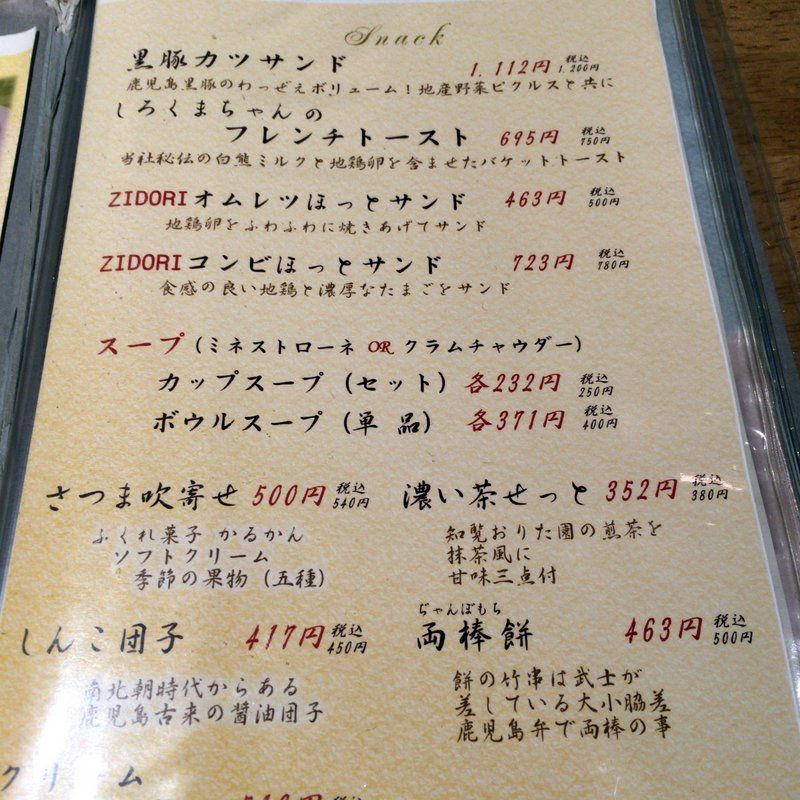 Snack
黒豚カツサンド 1,112円 税込 1,200円
鹿児島黒豚のわっぜえボリューム！地産野菜ピクルスと共に
しろくまちゃんの
フレンチトースト 695円 税込 750円
当社秘伝の白熊ミルクと地鶏卵を含ませたバケットトースト
ZIDORIオムレツほっとサンド 463円 税込 500円
地鶏卵をふわふわに焼きあげてサンド
ZIDORIコンビほっとサンド 723円 税込 780円
食感の良い地鶏と濃厚なたまごをサンド
スープ（ミネストローネ OR クラムチャウダー）
カップスープ（セット）各232円 税込 250円
ボウルスープ（単品）各371円 税込 400円
さつま吹寄せ 500円 税込 540円
ふくれ菓子 かるかん
ソフトクリーム
季節の果物（五種）
濃い茶せっと 352円 税込 380円
知覧おりた園の煎茶を
抹茶風に
甘味三点付
しんこ団子 417円 税込 450円
南北朝時代からある
鹿児島古来の醤油団子
ぢゃんぼもち
両棒餅 463円 税込 500円
餅の竹串は武士が
差している大小脇差
鹿児島弁で両棒の事
クリーム